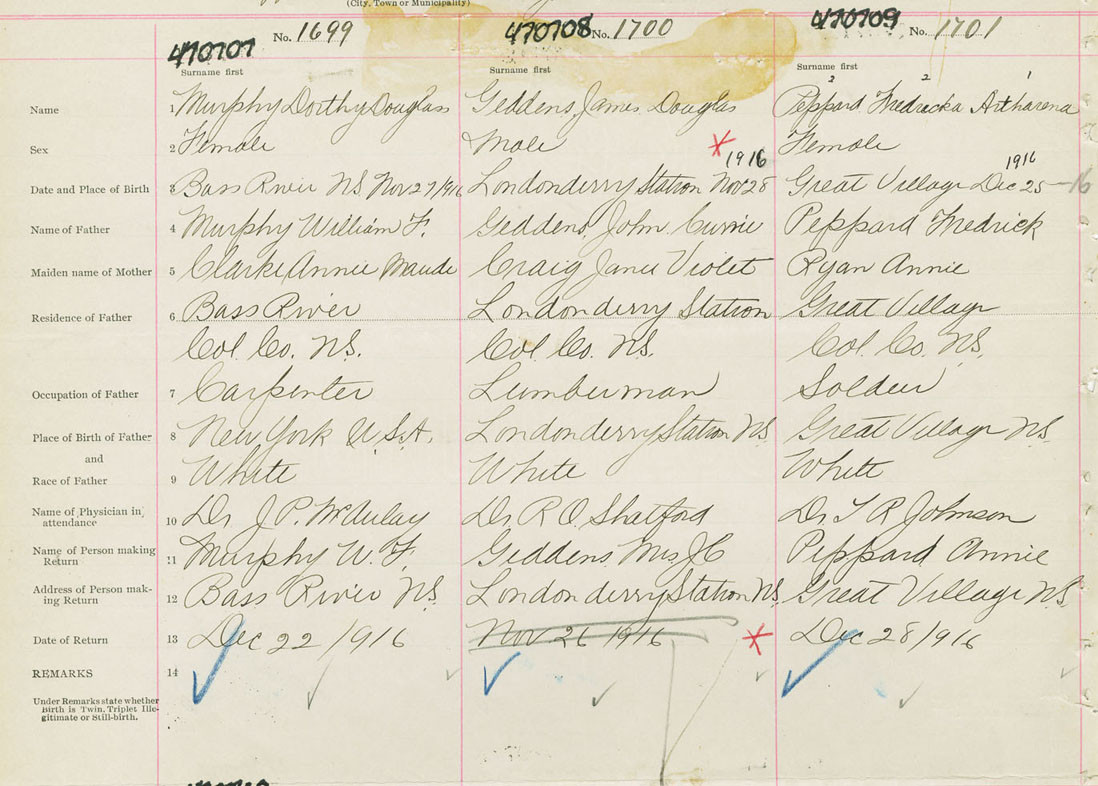 (City, Town or Municipality)
470707 No. 1699 470708 No. 1700 470709 No. 1701
Surname first Surname first Surname first
3 2 1
Name 1 Murphy Dorthy Douglass Geddens, James Douglas Peppard Fredricka Artharena
Sex 2 Female Male Female
1916 1916
Date and Place of Birth 3 Bass River N.S. Nov 27/916 Londonderry Station Nov 28 Great Village Dec 25 -16
Name of Father 4 Murphy William F. Geddens, John Currie Peppard Fredrick
Maiden name of Mother 5 Clarke, Annie Maude Craig Janie Violet Ryan Annie
Residence of Father 6 Bass River Londonderry Station Great Village
Col. Co. N.S. Col. Co. N.S. Col. Co. N.S.
Occupation of Father 7 Carpenter Lumberman Soldeir
Place of Birth of Father 8 New York U.S.A. Londonderry Station N.S. Great Village N.S.
and
Race of Father 9 White White White
Name of Physician in attendance 10 Dr J. P. McAulay Dr. R. O. Shatford Dr. T R Johnson
Name of Person making Return 11 Murphy W. F. Geddens Mrs J C Peppard Annie
Address of Person making Return 12 Bass River N.S. Londonderry Station N.S. Great Village N.S.
Date of Return 13 Dec 22/916 Nov 26 1916 Dec 28/916
REMARKS 14
Under Remarks state whether
Birth is Twin, Triplet Ille-
gitimate or Still-birth.